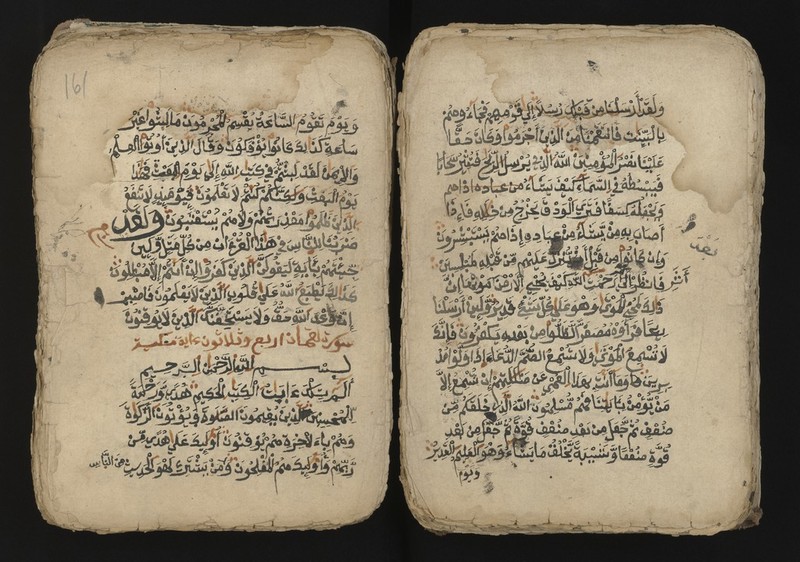 وَلَقَدْ أَرْسَلْنَا مِن قَبْلِكَ رُسُلًا إِلَى قَوْمِهِمْ فَجَاءُوهُمْ
بِالْبَيِّنَتِ فَانتَقَمْنَا مِنَ الَّذِينَ أَجْرَمُوا وَكَانَ حَقًّا
عَلَيْنَا نَصْرُ الْمُؤْمِنِينَ اللَّهُ الَّذِي يُرْسِلُ الرِّيَحَ فَتُثِيرُ سَحَابًا
فَيَبْسُطُهُ فِي السَّمَاءِ كَيْفَ يَشَاءُ مِنْ عِبَادِهِ إِذَا هُمْ
وَيَجْعَلُهُ كِسَفًا فَتَرَى الْوَدْقَ يَخْرُجُ مِنْ خِلَلِهِ فَإِذَا
أَصَابَ بِهِ مَن يَشَاءُ مِنْ عِبَادِهِ إِذَا هُمْ يَسْتَبْشِرُونَ
وَإِن كَانُوا مِن قَبْلِ أَن يُنَزَّلَ عَلَيْهِم مِّن قَبْلِهِ لَمُبْلِسِينَ
بَعْدَ
أَثَرِ
فَانظُرْ إِلَى رَحْمَتِ اللَّهِ كَيْفَ يُحْيِي الْأَرْضَ مَوْتِهَا إِنَّ
ذَلِكَ لَمُحْيِي الْمَوْتَى وَهُوَ عَلَى كُلِّ شَيْءٍ قَدِيرٌ وَلَئِنْ أَرْسَلْنَا
رِيحًا فَرَأَوْهُ مُصْفَرًّا لَّظَلُّوا مِن بَعْدِهِ يَكْفُرُونَ فَإِنَّكَ
لَا تُسْمِعُ الْمَوْتَى وَلَا تُسْمِعُ الصُّمَّ الدُّعَاءَ إِذَا وَلَّوْا مُدْ
بِرِينَ وَمَا أَنتَ بِهَدِ الْعُمْيِ عَن ضَلَلَتِهِمْ إِن تُسْمِعُ إِلَّا
مَن يُؤْمِنُ بِـَٔايَتِنَا فَهُم مُّسْلِمُونَ اللَّهُ الَّذِي خَلَقَكُم مِّن
ضُعْفٍ ثُمَّ جَعَلَ مِن بَعْدِ ضُعْفٍ قُوَّةً ثُمَّ جَعَلَ مِن بَعْدِ
قُوَّةٍ ضُعْفًا وَشَيْبَةً يَخْلُقُ مَا يَشَاءُ وَهُوَ الْعَلِيمُ الْقَدِيرُ
وَيَوْمَ
161
وَيَوْمَ تَقُومُ السَّاعَةُ يُقْسِمُ الْمُجْرِمُونَ مَا لَبِثُوا غَيْرَ
سَاعَةٍ كَذَلِكَ كَانُوا يُؤْفَكُونَ وَقَالَ الَّذِينَ أُوتُوا الْعِلْمَ
وَالْإِيمَنَ لَقَدْ لَبِثْتُمْ فِي كِتَبِ اللَّهِ إِلَى يَوْمِ الْبَعْثِ فَهَذَا
يَوْمُ الْبَعْثِ وَلَكِنَّكُمْ كُنتُمْ لَا تَعْلَمُونَ فَيَوْمَئِذٍ لَا تَنفَعُ
الَّذِينَ ظَلَمُوا مَعْذِرَتُهُمْ وَلَا هُمْ يُسْتَعْتَبُونَ وَلَقَدْ
ضَرَبْنَا لِلنَّاسِ فِي هَذَا الْقُرْءَانِ مِن كُلِّ مَثَلٍ وَلَئِن
جِئْتَهُم بِـَٔايَةٍ لَّيَقُولَنَّ الَّذِينَ كَفَرُوا إِنْ أَنتُمْ إِلَّا مُبْطِلُونَ
كَذَلِكَ يَطْبَعُ اللَّهُ عَلَى قُلُوبِ الَّذِينَ لَا يَعْلَمُونَ فَاصْبِرْ
إِنَّ وَعْدَ اللَّهِ حَقٌّ وَلَا يَسْتَخِفَّنَّكَ الَّذِينَ لَا يُوقِنُونَ
سورة لقمان اربع وثلاثون ءاية مكية
بِسْمِ اللَّهِ الرَّحْمَنِ الرَّحِيمِ
الم تِلْكَ ءَايَتُ الْكِتَبِ الْحَكِيمِ هُدًى وَرَحْمَةً
لِّلْمُحْسِنِينَ الَّذِينَ يُقِيمُونَ الصَّلَوةَ وَيُؤْتُونَ الزَّكَوةَ
وَهُم بِالْءَاخِرَةِ هُمْ يُوقِنُونَ أُولَئِكَ عَلَى هُدًى مِّن
رَّبِّهِمْ وَأُولَئِكَ هُمُ الْمُفْلِحُونَ وَمِنَ النَّاسِ مَن يَشْتَرِي لَهْوَ الْحَدِيثِ